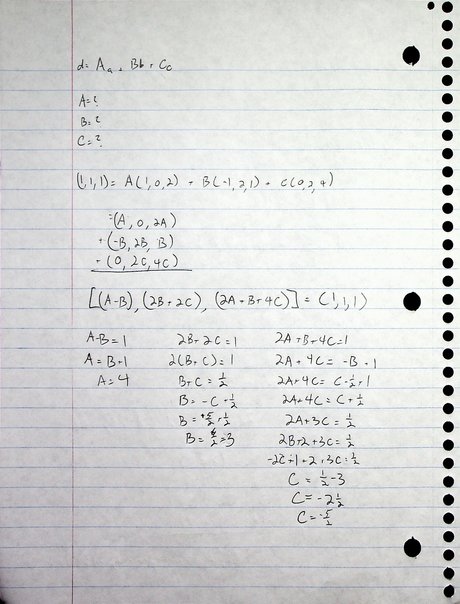 d = Aa + Bb + Cc
A = ?
B = ?
C = ?
(1,1,1) = A(1,0,2) + B(-1,2,1) + C(0,2,4)
= (A, 0, 2A)
+ (-B, 2B, B)
+ (0, 2C, 4C)
[(A-B), (2B+2C), (2A+B+4C)] = (1,1,1)
A-B=1 2B+2C=1 2A+B+4C=1
A=B+1 2(B+C)=1 2A+4C=-B+1
A=4 B+C=1/2 2A+4C=C-1/2+1
B=-C+1/2 2A+4C=C+1/2
B=+5/2+1/2 2A+3C=1/2
B=6/2=3 2B+2+3C=1/2
-2C+1+2+3C=1/2
C=1/2-3
C=-2 1/2
C=-5/2